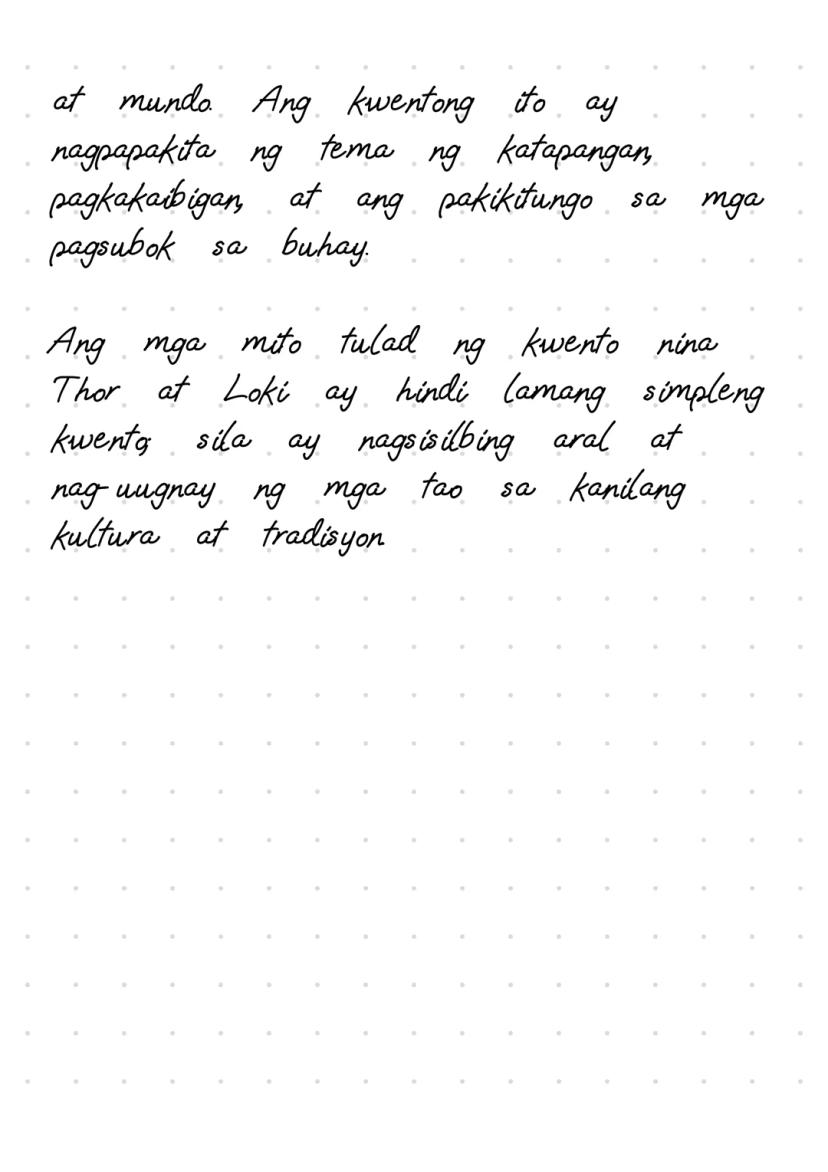 at mundo. Ang kwentong ito ay
nagpapakita ng tema ng katapangan,
pagkakaibigan, at ang pakikitungo sa mga
pagsubok sa buhay.
Ang mga mito tulad ng kwento nina
Thor at Loki ay hindi lamang simpleng
kwento; sila ay nagsisilbing aral at
nag-uugnay ng mga tao sa kanilang
kultura at tradisyon.